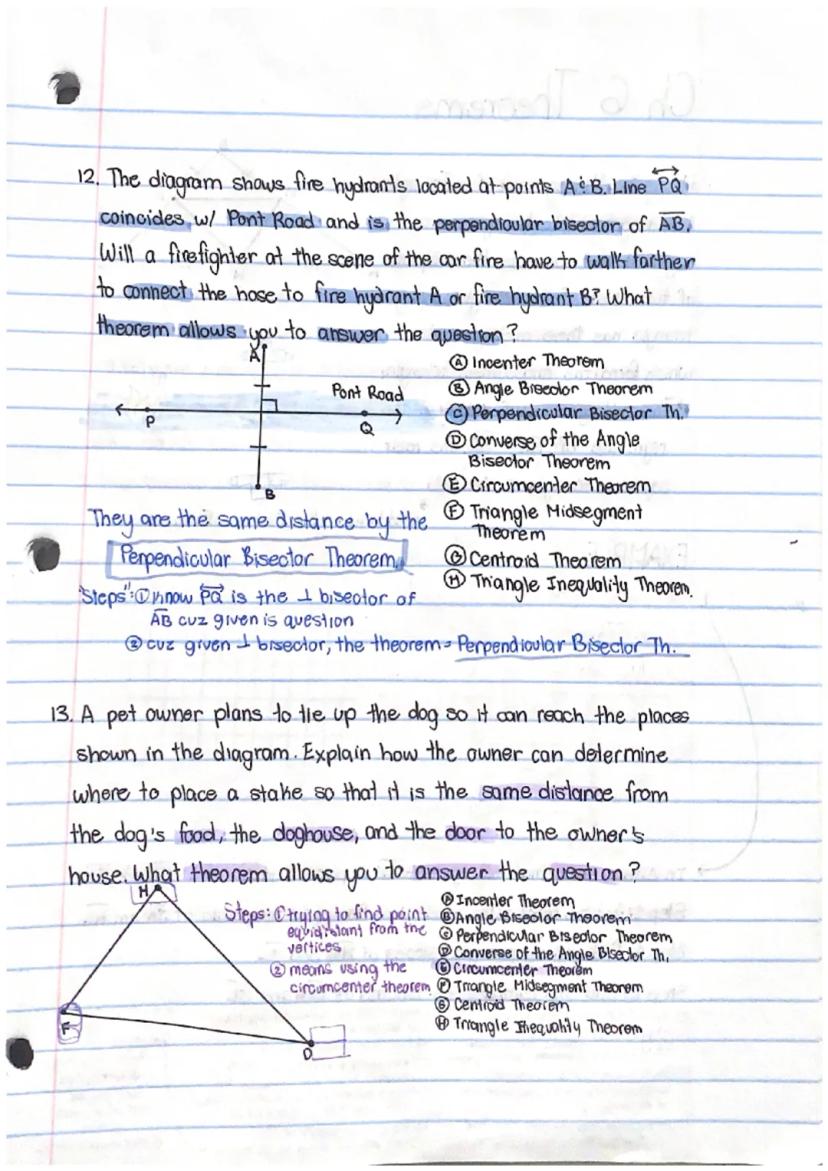 12. The diagram shows fire hydrants located at points A & B. Line PQ
coincides w/ Pont Road and is the perpendicular bisector of AB.
Will a firefighter at the scene of the car fire have to walk farther
to connect the hose to fire hydrant A or fire hydrant B? What
theorem allows you to answer the question?
A
Pont Road
P
Q
B
Ⓐ Incenter Theorem
Ⓑ Angle Bisector Theorem
Ⓒ Perpendicular Bisector Th.
Ⓓ Converse of the Angle
Bisector Theorem
Ⓔ Circumcenter Theorem
Ⓕ Triangle Midsegment
Theorem
Ⓖ Centroid Theorem
Ⓗ Triangle Inequality Theorem.
They are the same distance by the
Perpendicular Bisector Theorem.
"Steps": ① Know PQ is the ⊥ bisector of
AB cuz given is question
② cuz given ⊥ bisector, the theorem = Perpendicular Bisector Th.
13. A pet owner plans to tie up the dog so it can reach the places
shown in the diagram. Explain how the owner can determine
where to place a stake so that it is the same distance from
the dog's food, the doghouse, and the door to the owner's
house. What theorem allows you to answer the question?
H
F
D
Steps: ① trying to find point
equidistant from the
vertices
② means using the
circumcenter theorem
Ⓐ Incenter Theorem
Ⓑ Angle Bisector Theorem
Ⓒ Perpendicular Bisector Theorem
Ⓓ Converse of the Angle Bisector Th.
Ⓔ Circumcenter Theorem
Ⓕ Triangle Midsegment Theorem
Ⓖ Centroid Theorem
Ⓗ Triangle Inequality Theorem